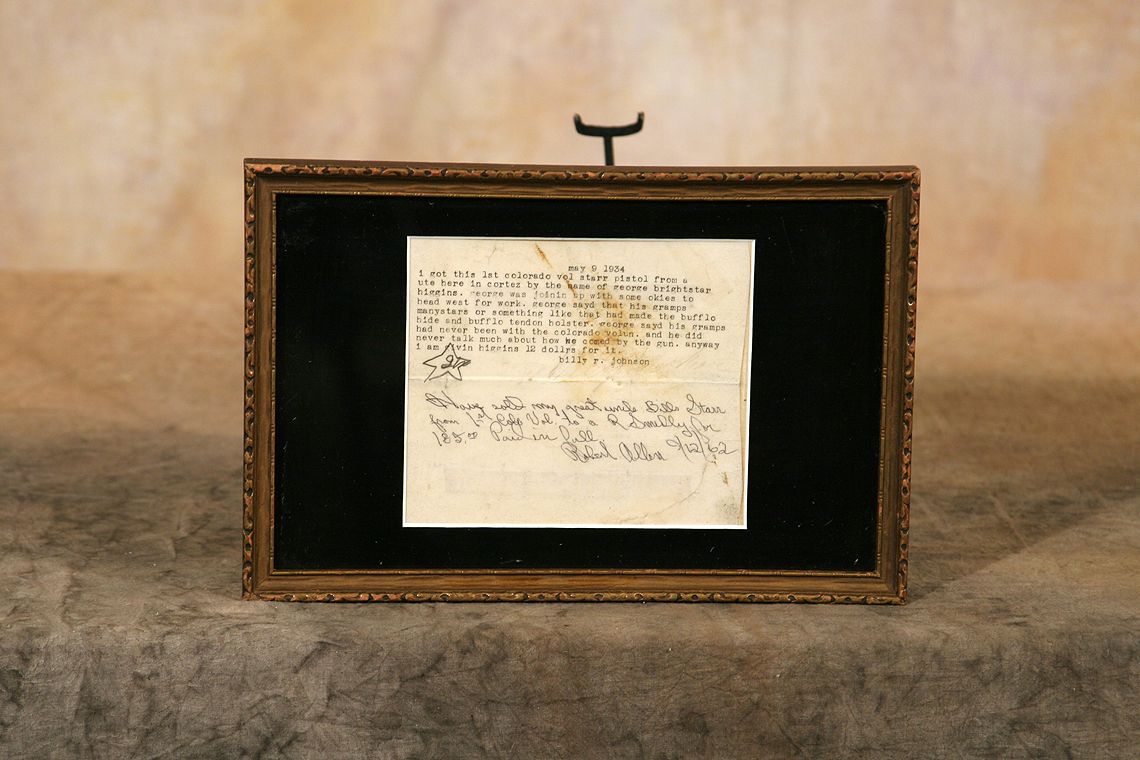 may 9 1934
i got this 1st colorado vol starr pistol from a
ute here in cortez by the name of george brightstar
higgins. george was joinin up with some okies to
head west for work. george sayd that his gramps
manystars or something like that had made the bufflo
hide and bufflo tendon holster. george sayd his gramps
had never been with the colorado volun. and he did
never talk much about how he comed by the gun. anyway
i am givin higgins 12 dollrs for it.
billy r. johnson
Have sold my great uncle Bills Starr
from 1st Colo Vol, to a R Smelly for
185.00 Paid in full
Robert Allen 9/12/62